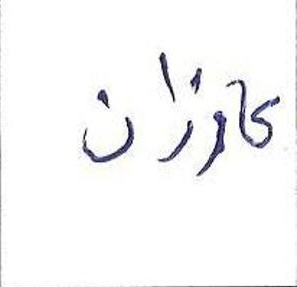 کاوزان